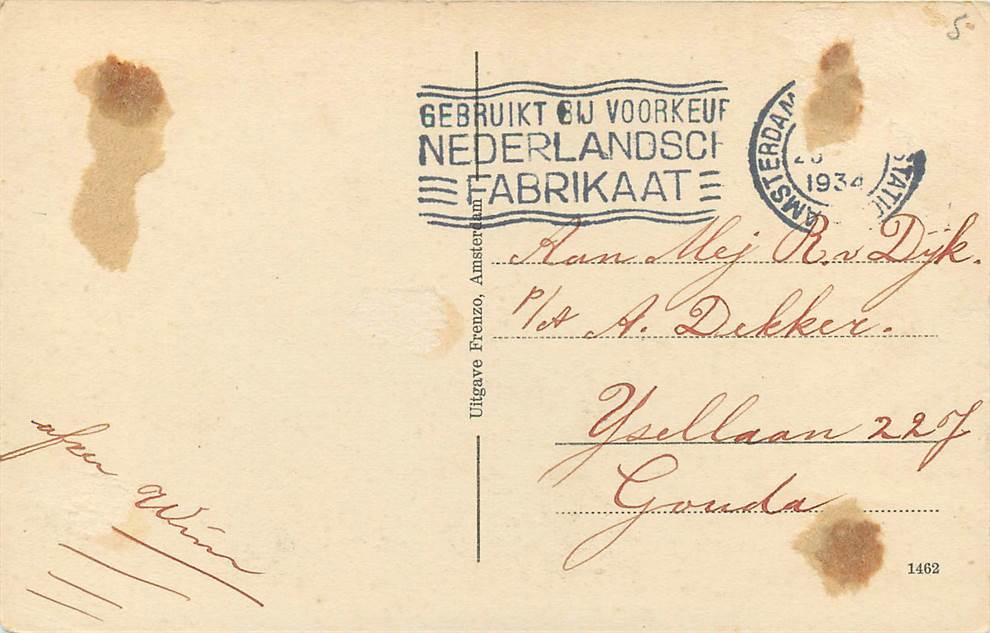 5-
GEBRUIKT BIJ VOORKEUR
NEDERLANDSCH
FABRIKAAT
AMSTERDAM
STATIO
1934
Uitgave Frenzo, Amsterdam
Aan Mej R. v Dijk.
p/A A. Dekker.
Ysellaan 227
Gouda
Wim
1462